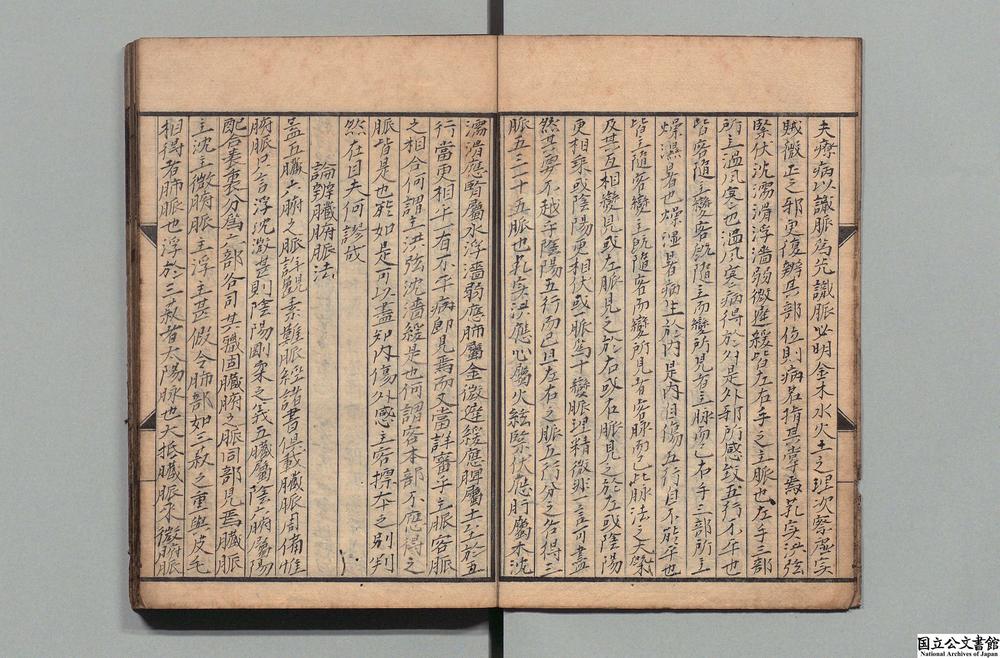 夫療病以識脈為先識脈必明金木水火土之理次察虛實
賊微正之邪更復辨其部位則病若指其掌焉芤实洪弦
緊伏沈濡滑浮濇弱微遲緩皆左右手之主脈也左手三部
所主溫風寒也溫風寒病得於外是外邪所感致五行不平也
皆客隨主變客既隨主而變所見者主脈而已右手三部所主
燥濕暑也燥濕暑病生於內是內自傷五行自不能平也
皆主隨客變主既隨客而變所見者客脈而已此脉法之大槩
及其互相變見或左脈見之於右或右脈見之於左或陰陽
更相乘或陰陽更相伏或一脈為十變脈理精微非一言可盡
然其要不越乎陰陽五行而已且左右之脈五行分之各得三
脈五三十五脈也芤实洪應心屬火絃緊伏應肝屬木沈
濡滑應腎屬水浮濇弱應肺屬金微遲緩應脾屬土至於五
行當更相平有不平病即見焉而又當詳審乎主脈客脈
之相合何謂主洪弦沈濇緩是也何謂客本部不應得之
脈皆是也於如是可以盡知內傷外感主客標本之別判
然在目夫何謬哉
論辨臟腑脈法
蓋五臟六腑之脈詳觀素難脈經諸書俱載臟脈周備惟
腑脈只言浮沈微甚則陰陽剛柔之義五臟屬陰六腑屬陽
配合表裏分為六部各司其職固臟腑之脈同部見焉臟脈
主沈主微腑脈主浮主甚假令肺部如三菽之重與皮毛
相得者肺脈也浮於三菽者太陽脉也大抵臟脈不微腑脈
国立公文書館
National Archives of Japan